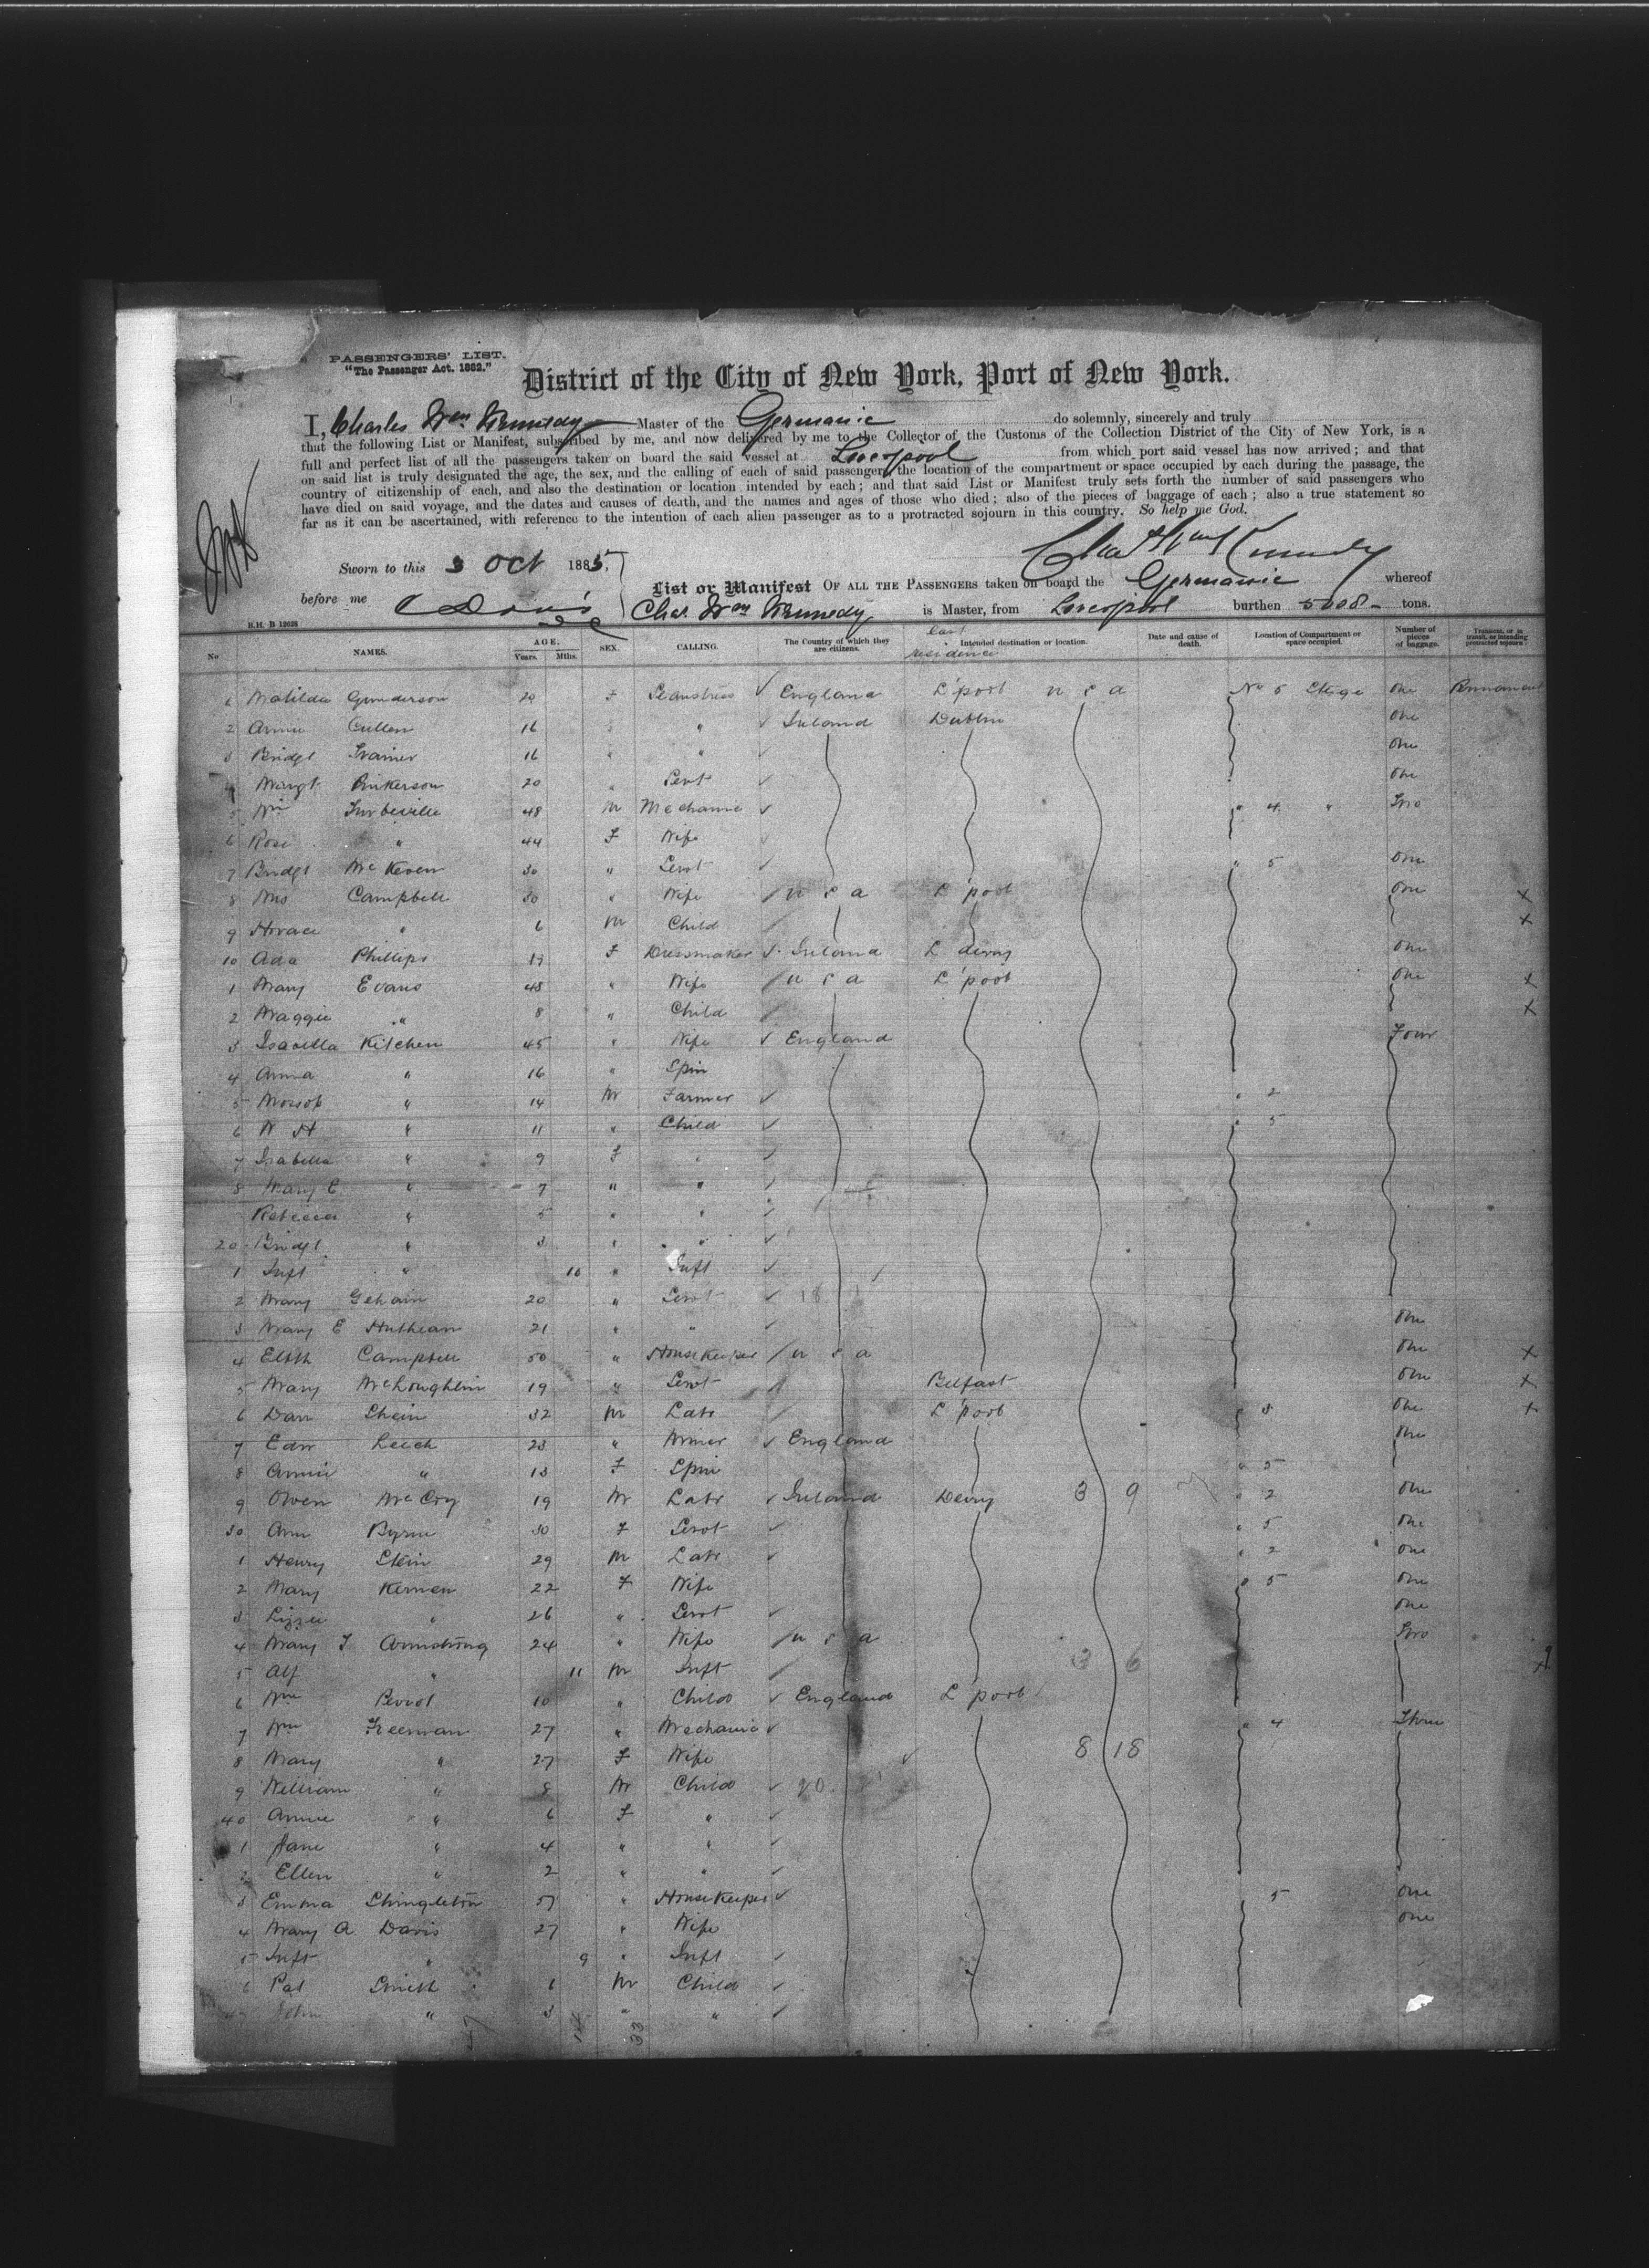 PASSENGERS' LIST.
"The Passenger Act. 1882."
District of the City of New York, Port of New York.
I, Charles Wm Kennedy Master of the Germanic do solemnly, sincerely and truly
that the following List or Manifest, subscribed by me, and now delivered by me to the Collector of the Customs of the Collection District of the City of New York, is a
full and perfect list of all the passengers taken on board the said vessel at Liverpool from which port said vessel has now arrived; and that
on said list is truly designated the age, the sex, and the calling of each of said passengers, the location of the compartment or space occupied by each during the passage, the
country of citizenship of each, and also the destination or location intended by each; and that said List or Manifest truly sets forth the number of said passengers who
have died on said voyage, and the dates and causes of death, and the names and ages of those who died; also of the pieces of baggage of each; also a true statement so
far as it can be ascertained, with reference to the intention of each alien passenger as to a protracted sojourn in this country. So help me God.
Chas Wm Kennedy
Sworn to this 3 Oct 1885,
before me
List or Manifest OF ALL THE PASSENGERS taken on board the Germanic whereof
Chas. Wm Kennedy is Master, from Liverpool burthen 5008 tons.
B.H. B 12028
No NAMES. AGE. Years. Mths. SEX. CALLING. The Country of which they are citizens. Last residence Intended destination or location. Date and cause of death. Location of Compartment or space occupied. Number of pieces of baggage. Transient, or in transit, or intending protracted sojourn
1 Matilda Gunderson 20 F Seamstress England L'pool U S A No 5 Stege One Permanent
2 Annie Cullen 16 " " Ireland Dublin One
3 Bridgt Trainer 16 " " One
4 Margt Pinkerson 20 " Servt One
5 Wm Turbeville 48 M Mechanic " 4 " Two
6 Rose " 44 F Wife
7 Bridgt McKeven 30 " Servt " 5 One
8 Mrs Campbell 30 " Wife U S A L'pool One X
9 Horace " 6 M Child X
10 Ada Phillips 17 F Dressmaker Ireland L derry One
1 Mary Evans 48 " Wife U S A L'pool One X
2 Maggie " 8 " Child X
3 Isabella Kitchen 45 " Wife England Four
4 Anna " 16 " Spin
5 Mossop " 14 M Farmer " 2
6 W H " 11 " Child " 5
7 Isabella " 9 F "
8 Mary E " 7 " "
Rebecca " 5 " "
20 Bridgt " 3 " "
1 Inft " 10 " Inft
2 Mary Gehain 20 " Servt
3 Mary E 21 " " One
4 Elbth Campbell 50 " Housekeeper U S A One X
5 Mary McLoughlin 19 " Servt Belfast One X
6 Dan Shein 32 M Labr L'pool " 3 One X
7 Edw Leech 23 " Miner England One
8 Annie " 13 F Spin " 5
9 Owen McCoy 19 M Labr Ireland Derry 3 9 " 2 One
30 Ann Byrne 30 F Servt " 5 One
1 Henry Stein 29 M Labr " 2 One
2 Mary Kernen 22 F Wife " 5 One
3 Lizzie " 26 " Servt One
4 Mary J Armstrong 24 " Wife U S A Two
5 Alf " 11 M Inft 3 6 X
6 Wm 10 " Child England L'pool
7 Wm Freeman 27 " Mechanic " 4 Three
8 Mary " 27 F Wife 8 18
9 William " 8 M Child
40 Annie " 6 F "
1 Jane " 4 " "
2 Ellen " 2 " "
3 Emma Shingleton 57 " Housekeeper 5 One
4 Mary A Davis 27 " Wife One
5 Inft " 9 " Inft
6 Pat Smith 6 M Child
John " 3 " "